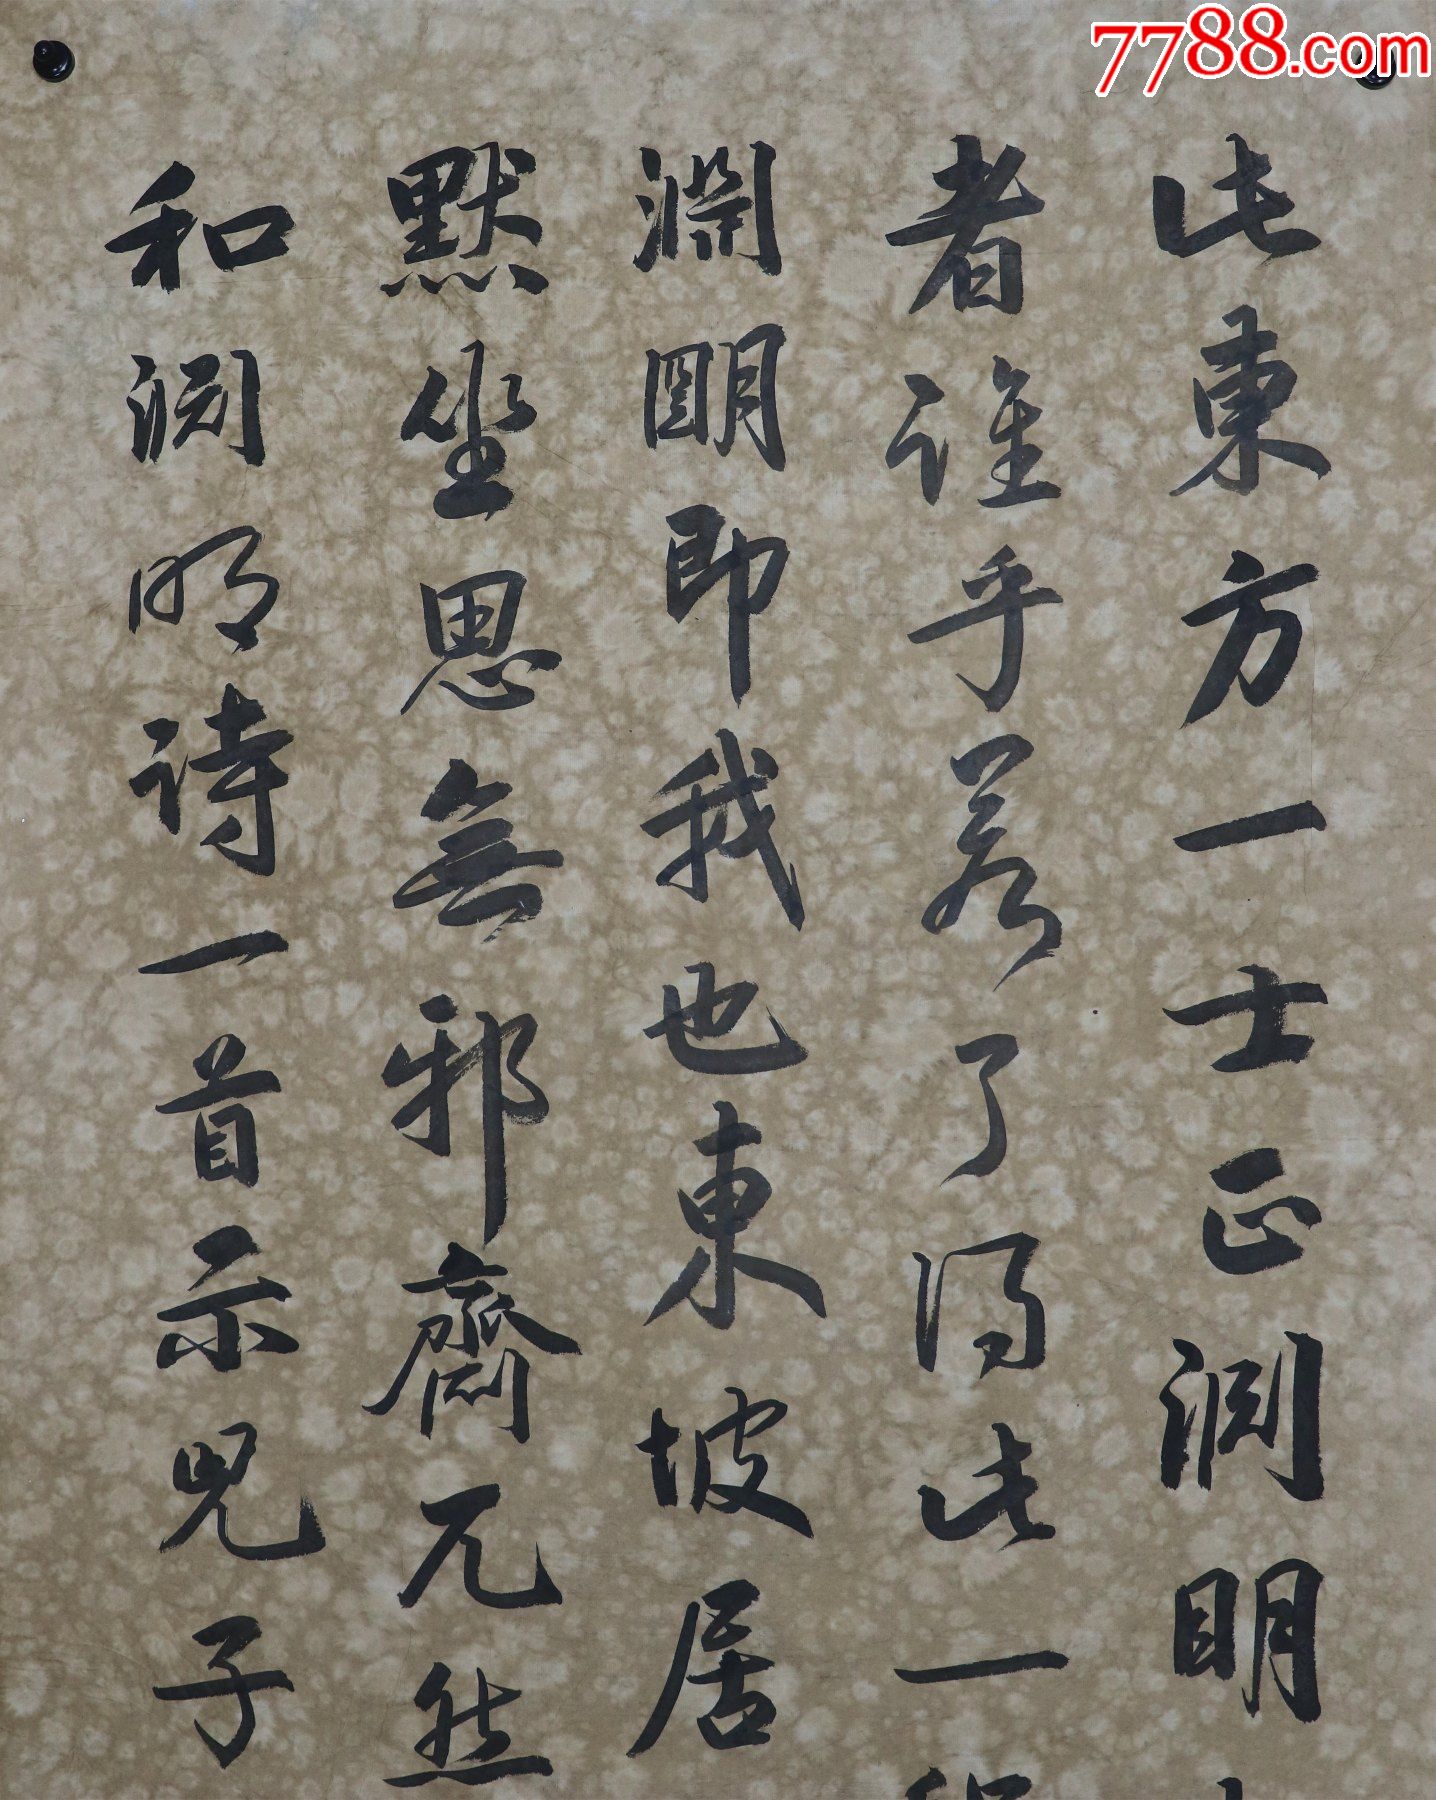 7788.com
此東方一士正淵明
者誰乎若了得此一
淵明即我也東坡居
默坐思無邪齋兀然
和渊明诗一首示兒子